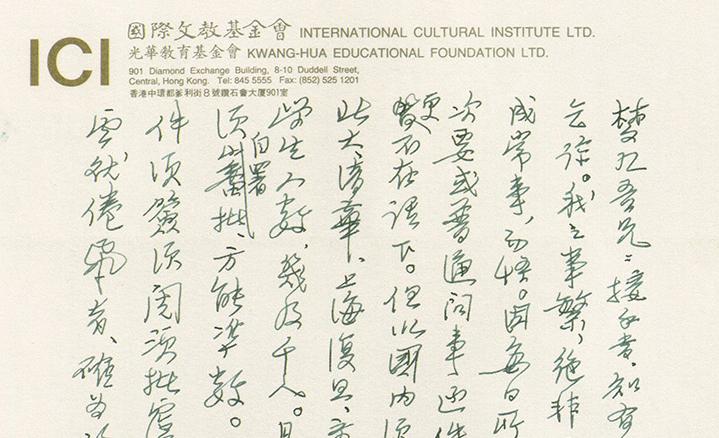 ICI
國際文教基金會 INTERNATIONAL CULTURAL INSTITUTE LTD.
光華教育基金會 KWANG-HUA EDUCATIONAL FOUNDATION LTD.
901 Diamond Exchange Building, 8-10 Duddell Street,
Central, Hong Kong. Tel: 845 5555 Fax: (852) 525 1201
香港中環都爹利街8號鑽石會大廈901室
吾兄：接手書，知有
諒。我之事繁，絕非
成常事，而。因每日所
次要或普通同事
更不在話下。但以國內
大、清華、上海復旦、
學生人數，幾及千人。
須自署批，方能
件須簽須閱須批
倦飛者、確為